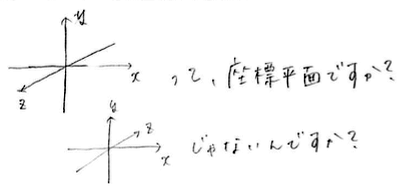 y
x
z
って、座標平面ですか?
y
z
x
じゃないんですか?